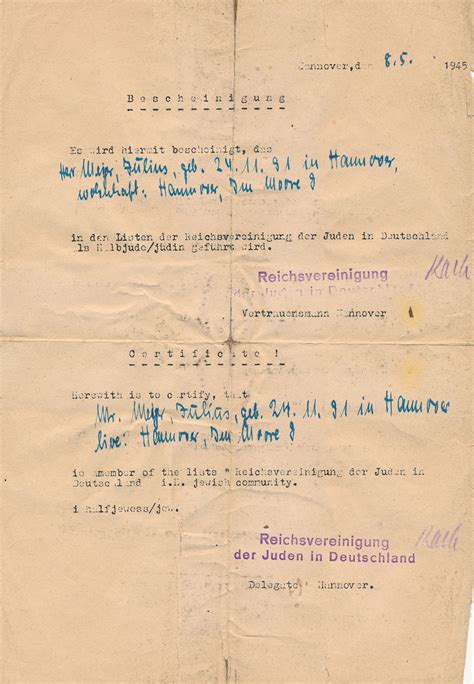 Hannover, den 8.5. 1945
Bescheinigung
Es wird hiermit bescheinigt, das
Herr Mejer, Julius, geb. 24.11.91 in Hannover,
wohnhaft: Hannover, Im Moore 8
in den Listen der Reichsvereinigung der Juden in Deutschland
als Halbjude/jüdin geführt wird.
Reichsvereinigung
der Juden in Deutschland
Vertrauensmann Hannover
Certificate!
Herewith is to certify, that
Mr. Mejer, Julius, geb. 24.11.91 in Hannover
live: Hannover, Im Moore 8
is amember of the lists " Reichsvereinigung der Juden in
Deutschland i.E. jewich community.
i halfjewess/jew.
Reichsvereinigung
der Juden in Deutschland
Delegate Hannover.